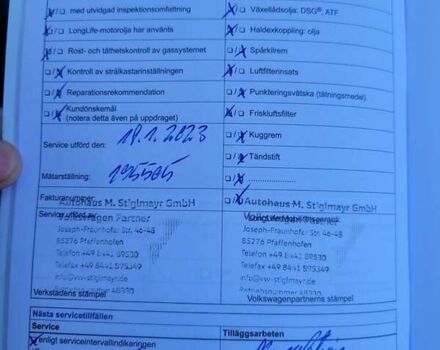 med utvidgad inspektionsomfattning
Växellådsolja: DSG®, ATF
LongLife-motorolja har använts
Haldexkoppling: olja
Rost- och täthetskontroll av gassystemet
Spärkilrem
Kontroll av strålkastarinställningen
Luftfilterinsats
Reparationsrekommendation
Punkteringsvätska (tätningsmedel)
Kundönskemål
(notera detta även på uppdraget)
Friskluftsfilter
Kuggrem
Service utförd den: 18.1.2023
Tändstift
Mätarställning: 195505
Fakturanummer:
Autohaus M. Stiglmayr GmbH
Autohaus M. Stiglmayr GmbH
Service utförd av:
Volkswagen Partner
Joseph-Fraunhofer Str. 46-48
Joseph-Fraunhofer Str. 46-48
85276 Pfaffenhofen
85276 Pfaffenhofen
info@vw-stiglmayr.de
info@vw-stiglmayr.de
Verkstadens stämpel
Volkswagenpartnerns stämpel
Nästa servicetillfällen
Service
Tilläggsarbeten
enligt serviceintervallindikeringen